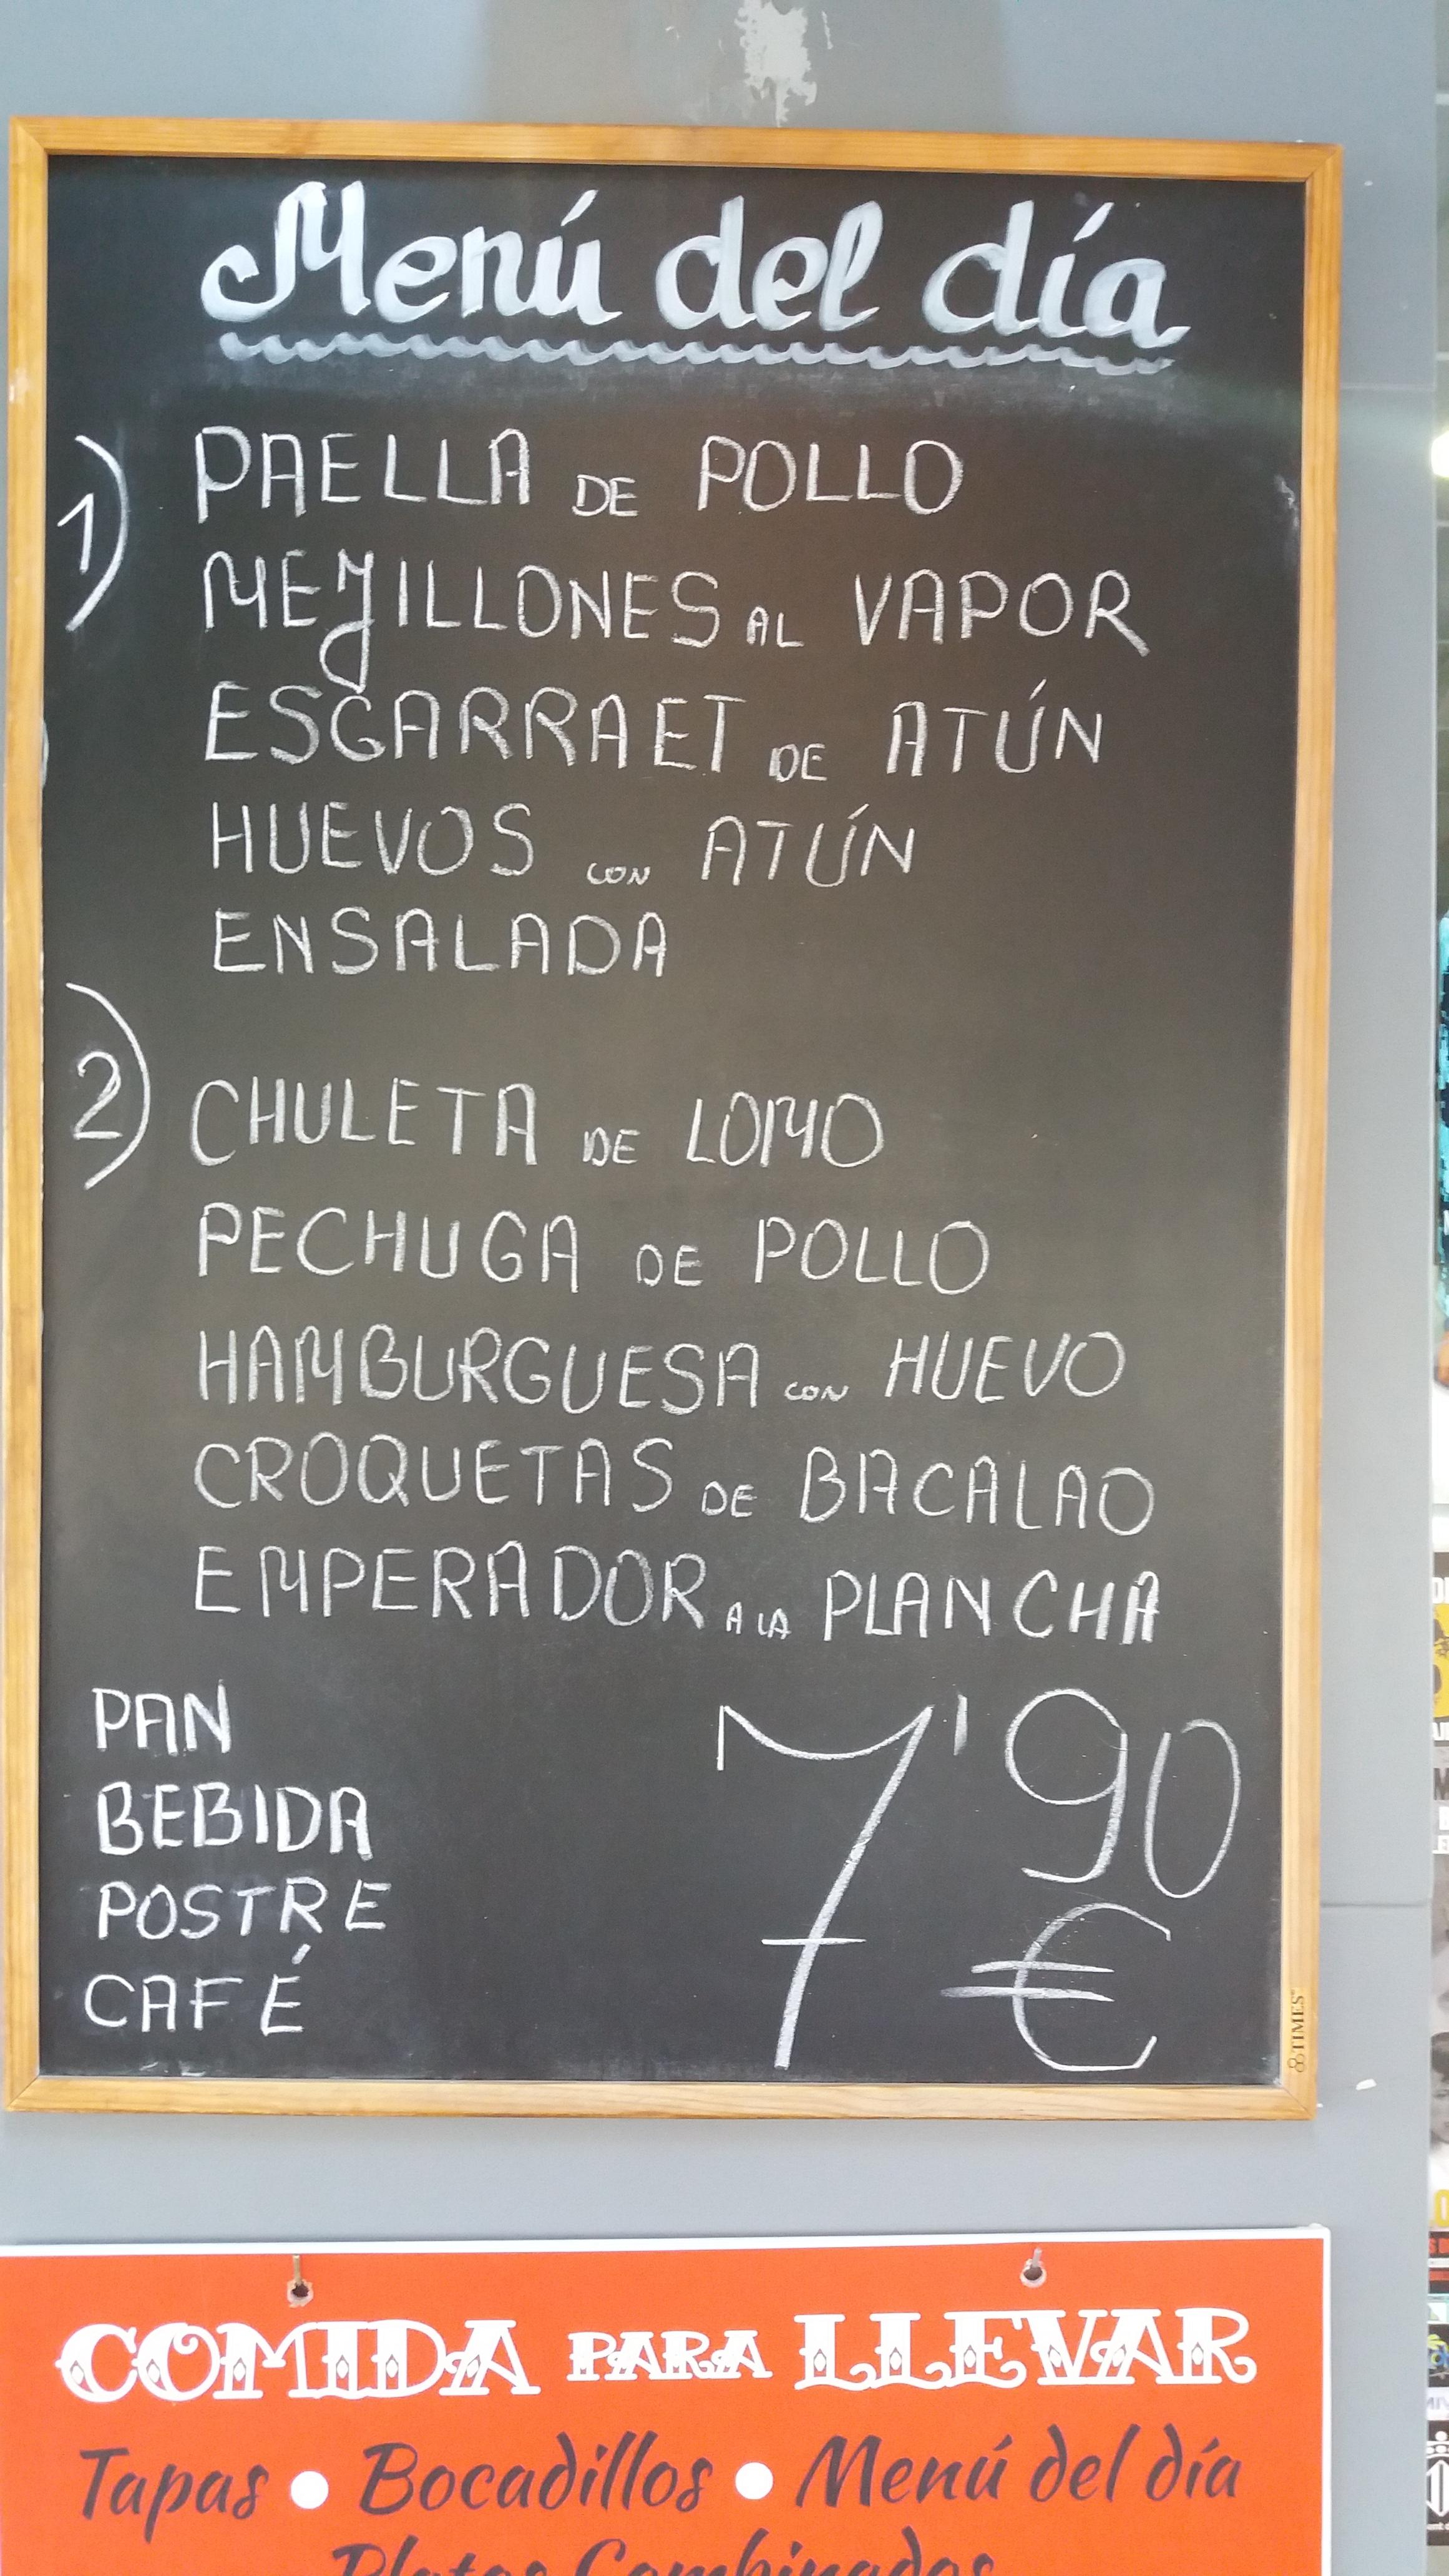 Menú del día
1) PAELLA DE POLLO
MEJILLONES AL VAPOR
ESGARRAET DE ATÚN
HUEVOS CON ATÚN
ENSALADA
2) CHULETA DE LOMO
PECHUGA DE POLLO
HAMBURGUESA CON HUEVO
CROQUETAS DE BACALAO
EMPERADOR A LA PLANCHA
PAN
BEBIDA
POSTRE
CAFÉ
7'90
€
TIMES
COMIDA PARA LLEVAR
Tapas • Bocadillos • Menú del día
Platos Combinados